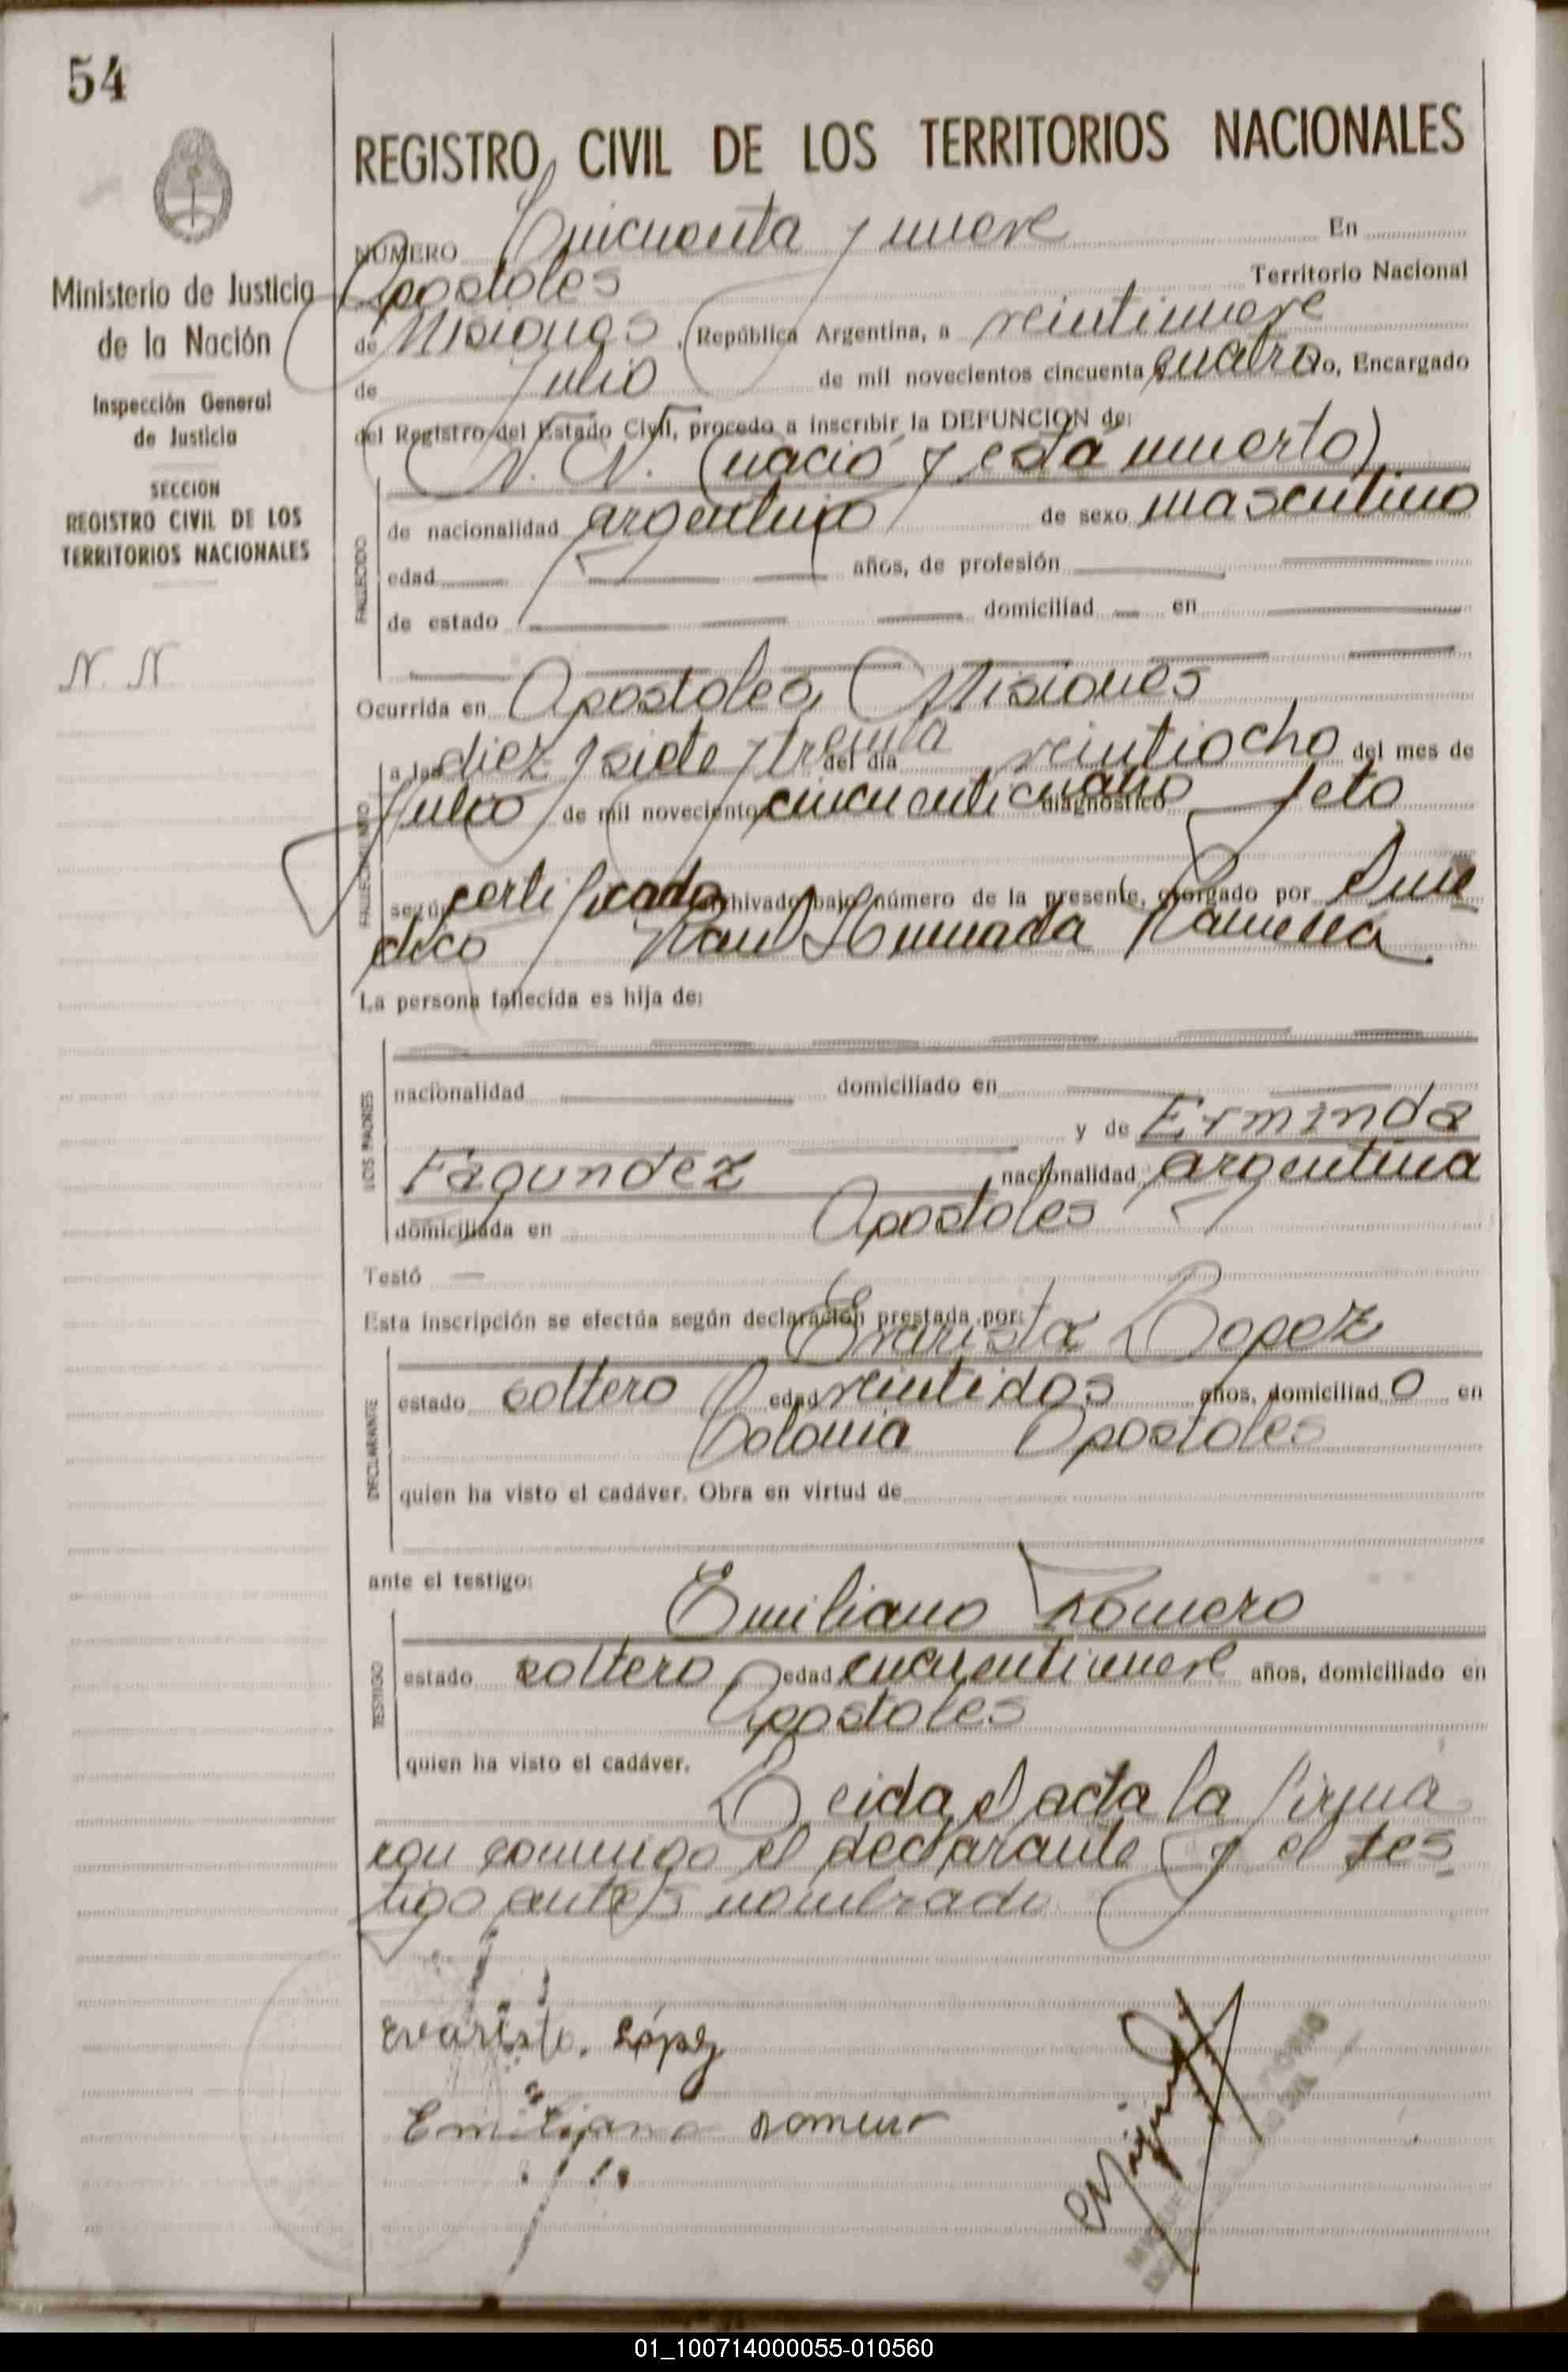 54
Ministerio de Justicia
de la Nación
Inspección General
de Justicia
SECCION
REGISTRO CIVIL DE LOS
TERRITORIOS NACIONALES
N. N.
REGISTRO CIVIL DE LOS TERRITORIOS NACIONALES
NUMERO Cincuenta y nueve En
Apostoles Territorio Nacional
de Misiones, República Argentina, a veintinueve
de Julio de mil novecientos cincuenta cuatro yo, Encargado
del Registro del Estado Civil, procedo a inscribir la DEFUNCION de:
N. N. (nació y está muerto)
FALLECIDO
de nacionalidad argentino de sexo masculino
edad años, de profesión
de estado domiciliad en
Ocurrida en Apostoles, Misiones
FALLECIMIENTO
a las diez y siete y treinta del día veintiocho del mes de
Julio de mil novecientos cincuenticuatro diagnóstico feto
según certificado archivado bajo número de la presente, otorgado por el mé-
dico Raul
La persona fallecida es hija de:
LOS PADRES
nacionalidad domiciliado en
y de Erminda
Fagundez nacionalidad argentina
domiciliada en Apostoles
Testó —
Esta inscripción se efectúa según declaración prestada por:
Evaristo Lopez
DECLARANTE
estado soltero edad veintidos años, domiciliad o en
Colonia Apostoles
quien ha visto el cadáver. Obra en virtud de
ante el testigo:
Emiliano Romero
TESTIGO
estado soltero edad cuarentinueve años, domiciliado en
Apostoles
quien ha visto el cadáver.
Leida el acta la firma
ron conmigo el declarante y el tes
tigo antes nombrado
Evaristo. López
Emiliano Romero
01_100714000055-010560